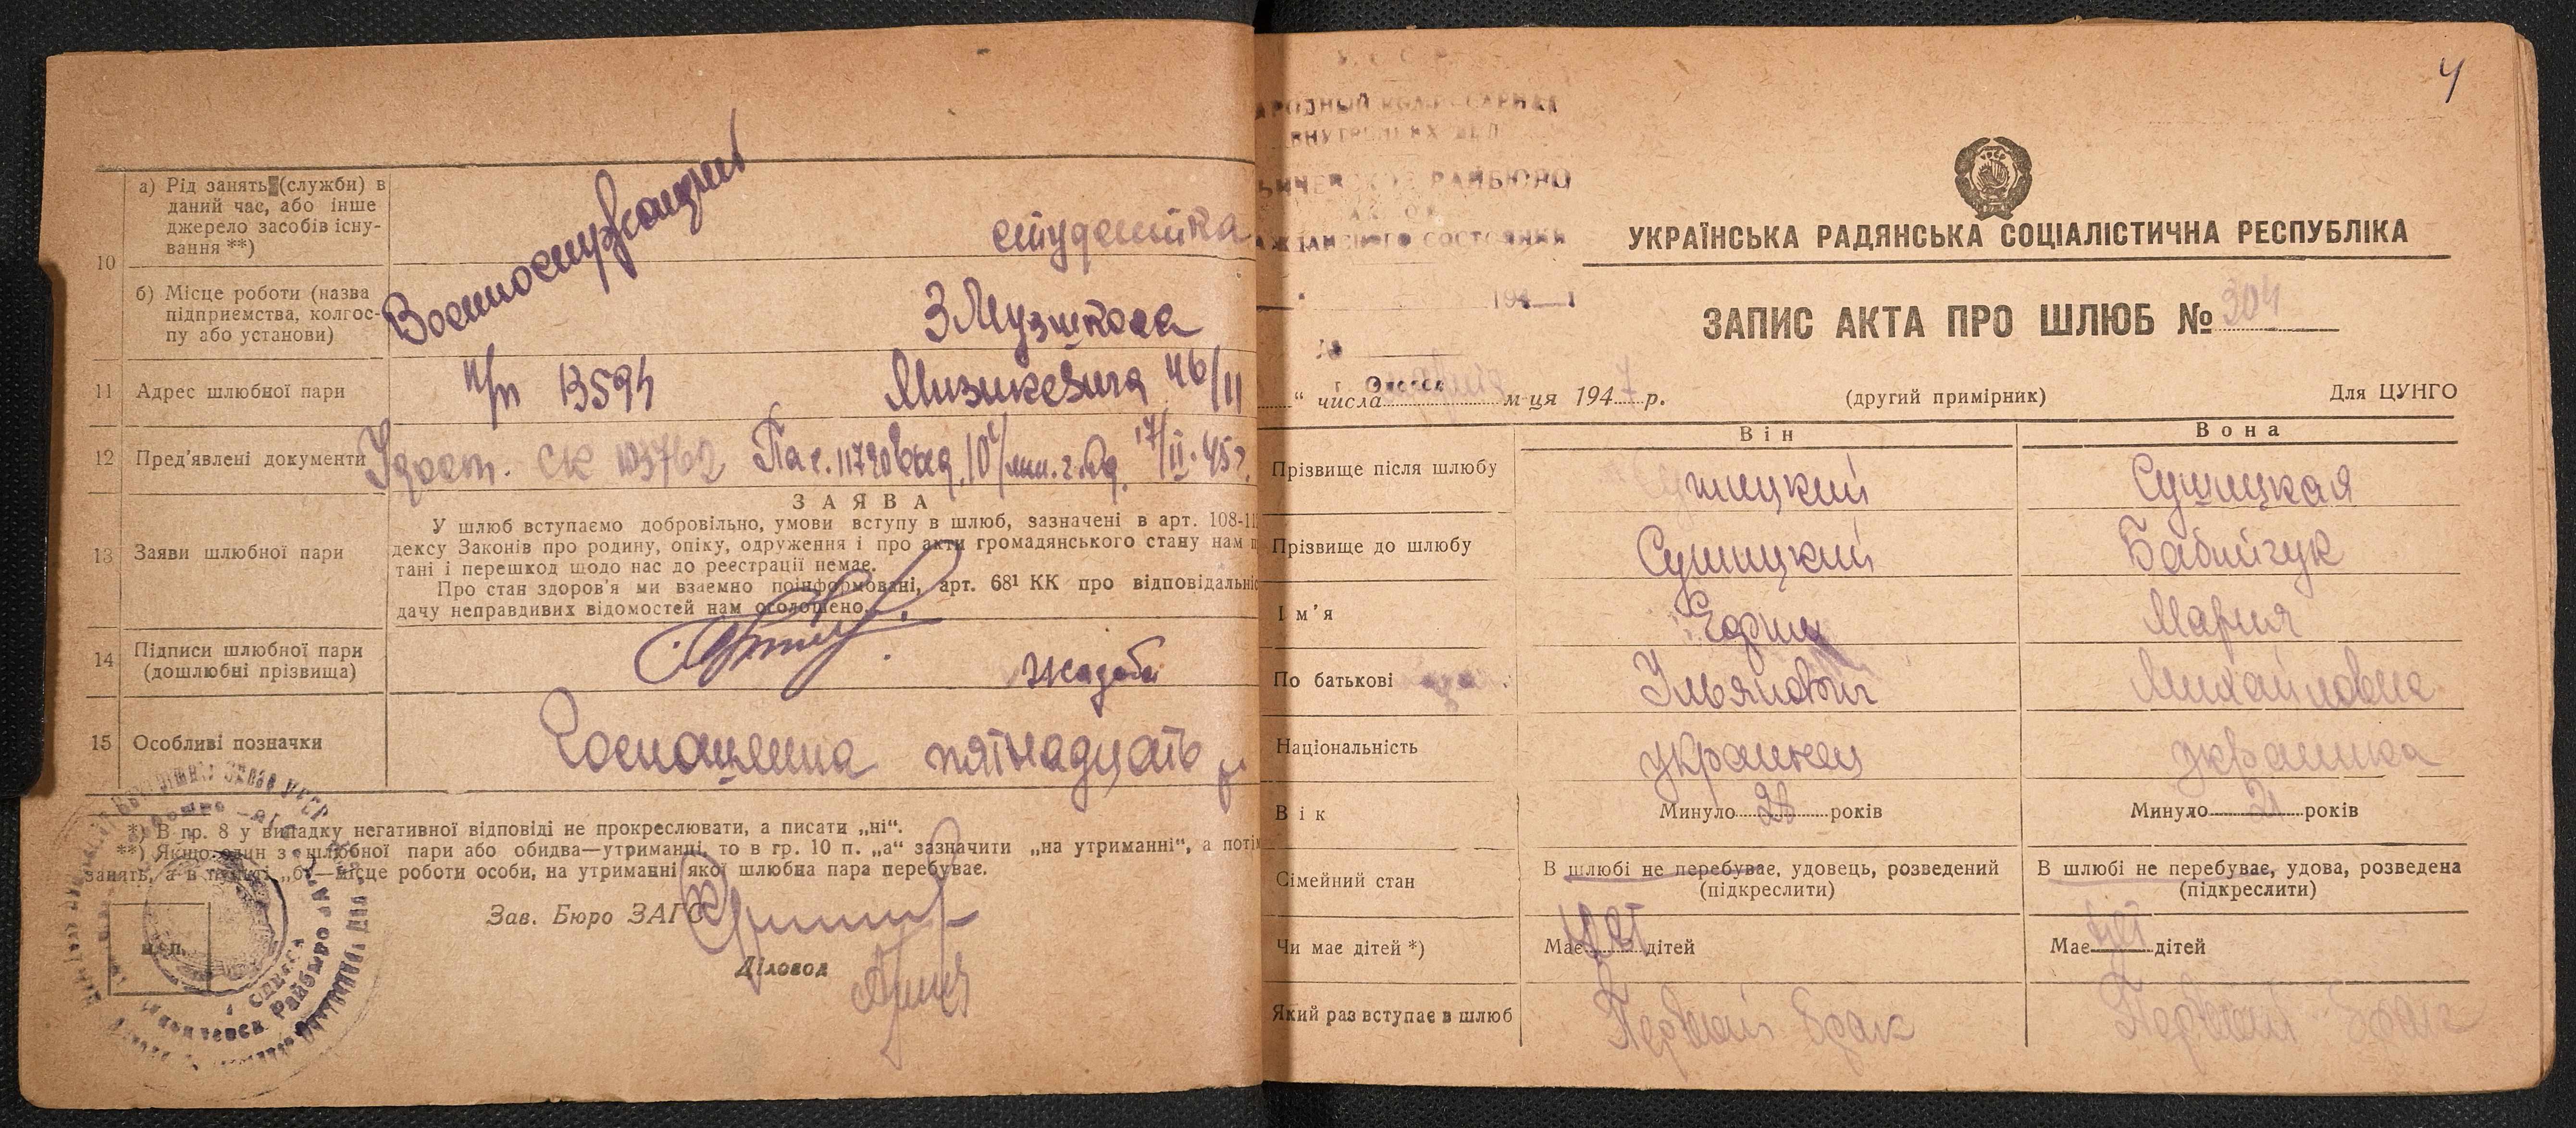 10
а) Рід занять (служби) в
даний час, або інше
джерело засобів існу-
вання **)
Военнослужащий
студентка
б) Місце роботи (назва
підприємства, колгос-
пу або установи)
11
Адрес шлюбної пари
п/п 13594
46/11
12
Пред'явлені документи
Удост. СК 103762
17/II-45г.
13
Заяви шлюбної пари
ЗАЯВА
У шлюб вступаємо добровільно, умови вступу в шлюб, зазначені в арт. 108-11
дексу Законів про родину, опіку, одруження і про акти громадянського стану нам
тані і перешкод щодо нас до реєстрації немає.
Про стан здоров'я ми взаємно поінформовані, арт. 68¹ КК про відповідальніс
дачу неправдивих відомостей нам оголошено.
14
Підписи шлюбної пари
(дошлюбні прізвища)
15
Особливі позначки
Госпошлина пятнадцать
*) В гр. 8 у випадку негативної відповіді не прокреслювати, а писати „ні“.
**) Якщо один з шлюбної пари або обидва—утриманні, то в гр. 10 п. „а“ зазначити „на утриманні“, а поті
занять, а в пункті „б“—місце роботи особи, на утриманні якої шлюбна пара перебуває.
Зав. Бюро ЗАГС
Діловод
м.п.
4
НАРОДНЫЙ КОМИССАРИАТ
ВНУТРЕННИХ ДЕЛ
РАЙБЮРО
АКТОВ
ГРАЖДАНСКОГО СОСТОЯНИЯ
194
г. Одесса
УРСР
УКРАЇНСЬКА РАДЯНСЬКА СОЦІАЛІСТИЧНА РЕСПУБЛІКА
ЗАПИС АКТА ПРО ШЛЮБ № 304
“ числа м-ця 1947 р.
(другий примірник)
Для ЦУНГО
Він
Вона
Прізвище після шлюбу
Сушицкая
Прізвище до шлюбу
Сушицкий
Бабийчук
Ім'я
Мария
По батькові
Ульянович
Михайловна
Національність
украинец
украинка
Вік
Минуло 28 років
Минуло 21 років
Сімейний стан
В шлюбі не перебуває, удовець, розведений
(підкреслити)
В шлюбі не перебуває, удова, розведена
(підкреслити)
Чи має дітей *)
Має нет дітей
Має нет дітей
Який раз вступає в шлюб
Первый брак
Первый брак